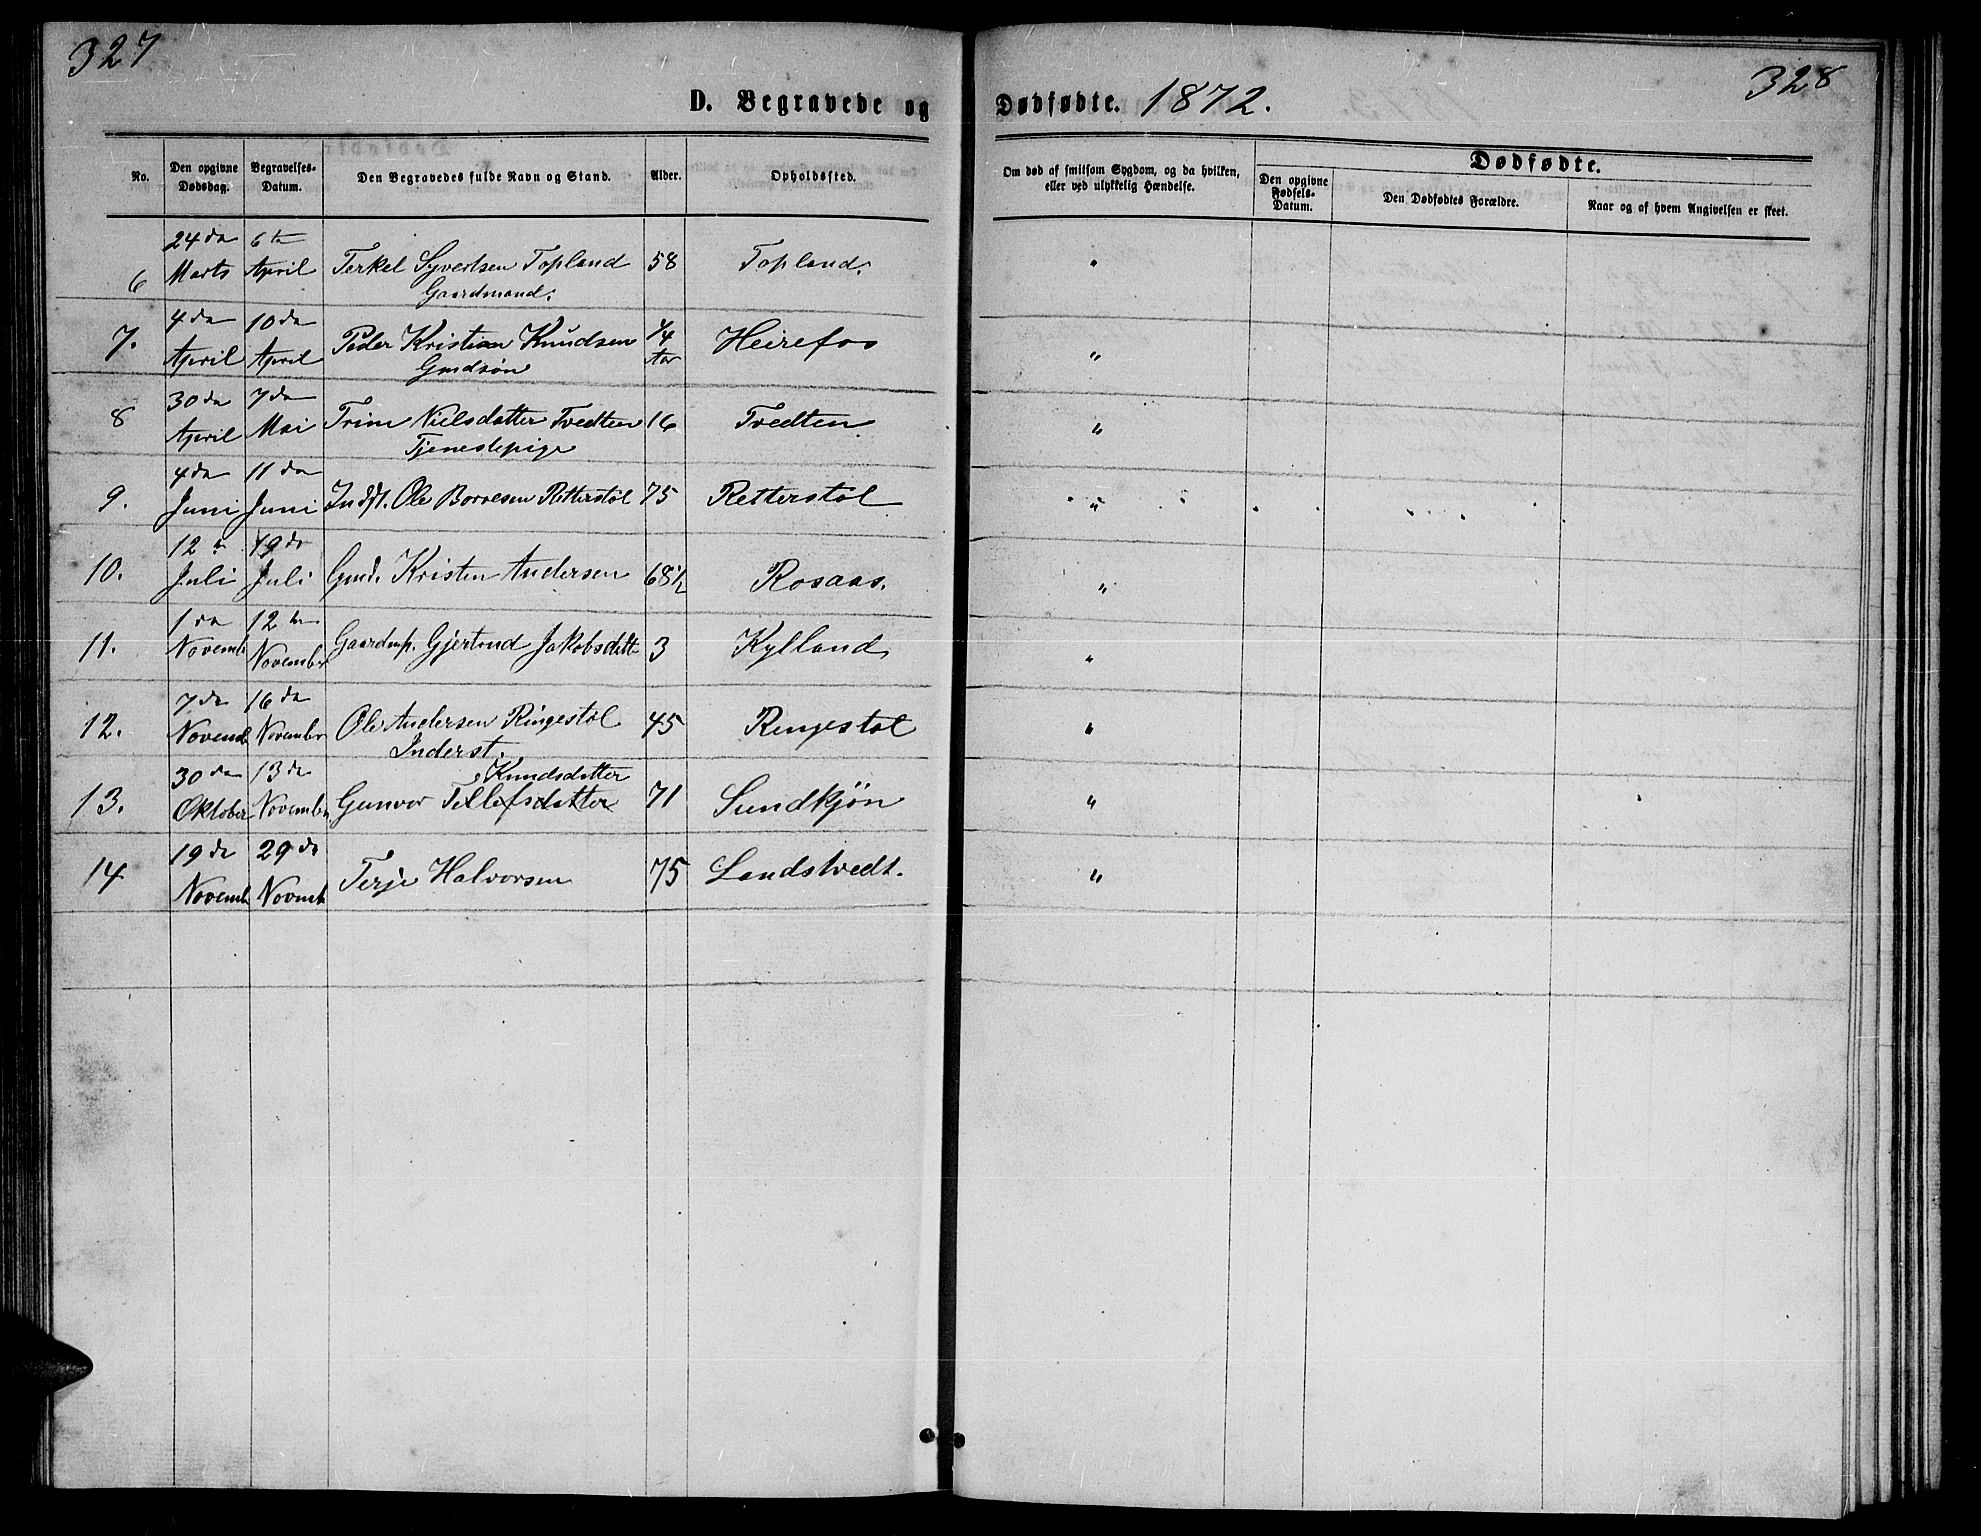 327
328
D. Begravede og Dødfødte. 1872.
No. Den opgivne Dødsdag. Begravelses-Datum. Den Begravedes fulde Navn og Stand. Alder. Opholdssted. Om død af smitsom Sygdom, og da hvilken, eller ved ulykkelig Hændelse. Dødfødte.
Den opgivne Fødsels-Datum. Den Dødfødtes Forældre. Naar og af hvem Angivelsen er skeet.
24de 6te
6 Marts April Terkel Syvertsen Topland 58 Topland. "
Gaardmand.
4de 10de
7. April April Peder Kristian Knudsen 1/4 Aar Heirefos "
Gmdsøn
30de 7de
8 April Mai Trine Nielsdatter Tvedten 16 Tvedten "
Tjenestepige
4de 11de
9. Juni Juni Indst. Ole Borresen Retterstøl 75 Retterstøl "
12te 19de
10. Juli Juli Gmd. Kristen Andersen 68 1/2 Rosaas. "
1ste 12te
11. Novemb November Gaardmp. Gjertrud Jakobsdatt 3 Kylland "
7de 16de
12. Novemb November Ole Andersen Ringestøl 45 Ringestøl "
Inderst.
30de 13de Knudsdatter
13. Oktober November Gunvor Tellefsdatter 71 Sundkjøn "
19de 29de
14 Novemb Novmb Terje Halvorsen 75 Landstvedt. "